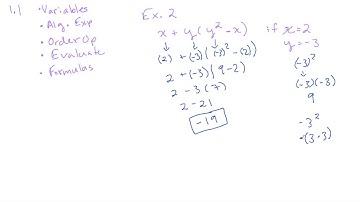 1.1
• Variables
• Alg. Exp
• Order Op
• Evaluate
• Formulas
Ex. 2
x + y(y² - x) if x = 2
y = -3
(2) + (-3)((-3)² - (2))
2 + (-3)(9 - 2)
2 - 3(7)
2 - 21
-19
(-3)²
(-3)(-3)
9
-3²
-(3·3)